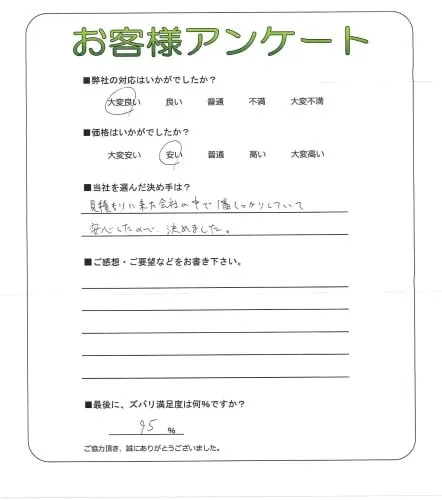 お客様アンケート
■弊社の対応はいかがでしたか?
大変良い 良い 普通 不満 大変不満
■価格はいかがでしたか?
大変安い 安い 普通 高い 大変高い
■当社を選んだ決め手は?
見積もりに来た会社の中で1番しっかりしていて
安心したので、決めました。
■ご感想・ご要望などをお書き下さい。
■最後に、ズバリ満足度は何%ですか?
95 %
ご協力頂き、誠にありがとうございました。